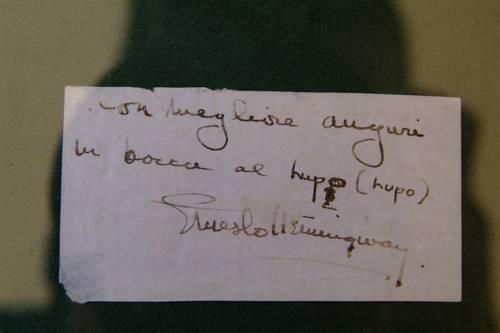 con megliore auguri
in bocca al lupo (lupo)
Ernesto Hemingway.